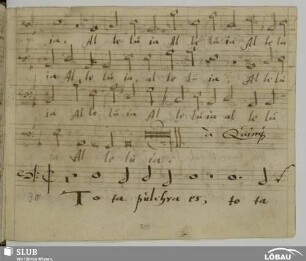 ia. Al le lü ia Al le lü ia Al le lü
ia Al le lü ia, al le lü ia. Al le lü
ia Al le lü ia Al le lü ia al le lü
à Quinq
ia Al le lü ia.
To ta pulchra es, to ta
SLUB
Wir führen Wissen.
LÖBAU